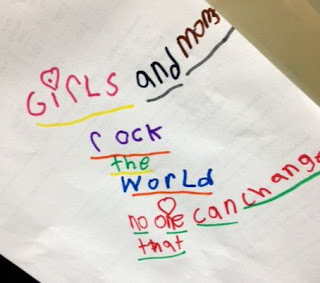 GirLs and moms
rock
the
WorLd
no one can change
that